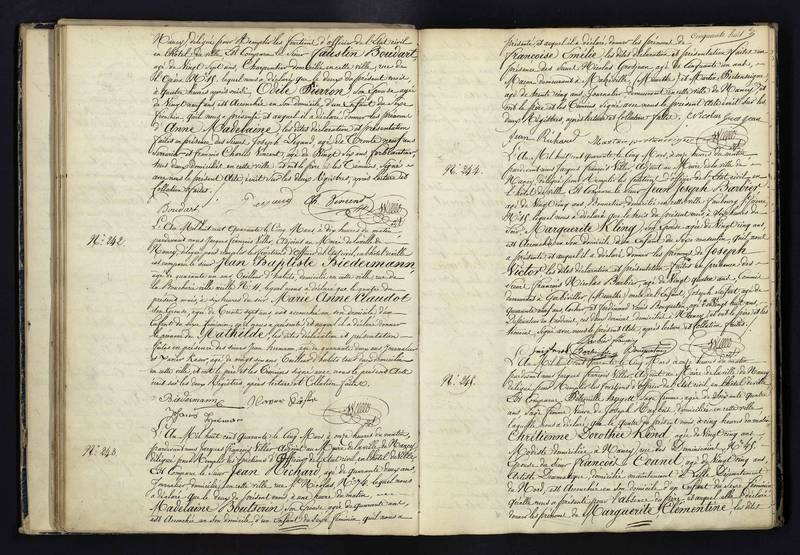 Nancy, délégué pour Remplir les fonctions d'officier de l'Etat civil
en l'hôtel de ville Est Comparu le Sieur Faustin Boudart,
agé de Vingt Sept ans, Charpentier domicilié en cette ville, rue
N° 15, lequel nous a déclaré que le deux du présent mois
à quatre heures après midi, Odèle Pierron, Son épouse agée
de Vingt neuf ans est Accouchée en Son domicile d'un Enfant du Sexe
féminin qu'il nous a présenté et auquel il a déclaré donner les prénoms
d'Anne Madelaine, les dites déclaration et présentation
faites en présence des Sieurs Joseph agé de Trente neuf ans
et François Charles Vincent, agé de Vingt Six ans ferblantier,
tous deux domiciliés en cette ville et ont le père et les Témoins Signé
avec nous le présent Acte écrit Sur les deux Registres, après lecture et
Collation faites.
Boudart
N° 242.
L'An Mil huit cent Quarante le Cinq Mars à dix heures du matin
pardevant nous Jacques François Villez, Adjoint au Maire de la ville de
Nancy, délégué pour Remplir les fonctions d'officier de l'Etat civil, en l'hôtel de ville
est comparu le Sieur Jean Baptiste Biedermann,
agé de quarante un ans, Tailleur d'habits domicilié en cette ville, rue de
la Boucherie ville vieille N° 11, lequel nous a déclaré que le quatre du
présent mois, à Six heures du Soir Marie Anne Claudot
Son Epouse, agée de Trente Sept ans est accouchée en Son domicile d'un
Enfant du Sexe féminin qu'il nous a présenté et auquel il a déclaré donner
le prénom de Mathilde, les dites déclaration et présentation
faites en présence des Sieurs Jean agé de quarante deux ans Journalier
et Xavier agé de vingt Six ans Tailleur d'habits tous deux domiciliés
en cette ville, et ont le père et les Témoins Signé avec nous le présent Acte
écrit sur les deux Registres après lecture et Collation faites.
Biedermann
N° 243.
L'An Mil huit cent Quarante le Cinq Mars à onze heures du matin,
pardevant nous Jacques François Villez Adjoint au Maire de la ville de Nancy
délégué pour Remplir les fonctions d'officier de l'Etat civil en l'hôtel de Ville
Est Comparu le Sieur Jean Richard, agé de quarante deux ans,
Journalier domicilié en cette ville, rue St Nicolas N° 74, lequel nous
a déclaré que le deux du présent mois à une heure du matin,
Madelaine Son épouse agée de quarante ans,
est Accouchée en Son domicile, d'un Enfant du Sexe féminin, qu'il nous a
Cinquante huit
présenté, et auquel il a déclaré donner les prénoms de
Françoise Emélie, les dites déclaration et présentation faites en
présence des Sieurs Nicolas Grosjean agé de Cinquante ans,
Maçon demeurant à (Meurthe) et Martin
agé de trente cinq ans, Journalier demeurant en cette ville de Nancy et
ont le père et les Témoins Signé avec nous le présent Acte écrit Sur les
deux Registres, après lecture et Collation faites. Nicolas Grosjean
Jean Richard
N° 244.
L'An Mil huit cent quarante le Cinq Mars, onze heures du matin
pardevant nous Jacques François Villez, Adjoint au Maire de la ville de
Nancy, délégué pour Remplir les fonctions d'officier de l'Etat civil en
l'hôtel de ville. Est Comparu le Sieur Jean Joseph Barbier
agé de Vingt Cinq ans, domicilié en cette ville faubourg St Pierre,
N° 15. lequel nous a déclaré que le trois du présent mois à onze heures du
Soir, Marguerite Kling, Son épouse, agée de Vingt Cinq ans,
est Accouchée en Son domicile d'un Enfant du Sexe masculin, qu'il nous
a présenté et auquel il a déclaré donner les prénoms de Joseph
Victor, les dites déclaration et présentation faites en présence des
Sieurs François Nicolas Barbier, agé de Vingt quatre ans,
demeurant à (Meurthe) Joseph agé de
quarante cinq ans, et Ferdinand agé de Vingt huit ans,
domiciliés à Nancy, et ont le père et les
témoins, Signé avec nous le présent Acte, après lecture et Collation faites.
N° 245.
L'An Mil huit cent quarante le Cinq Mars, onze heures du matin
pardevant nous Jacques François Villez, Adjoint au Maire de la ville de Nancy
délégué pour Remplir les fonctions d'officier de l'Etat civil, en l'hôtel de ville
Est Comparue Sage femme, agée de Soixante quatre
ans, Veuve de Joseph domiciliée en cette ville
laquelle nous a déclaré que le quatre du présent mois à cinq heures du matin
Chrétienne Dorothée Kend, agée de Vingt cinq ans,
Modiste domiciliée à Nancy, rue des Dominicains N° 45.
Epouse du Sieur François Le Counel, agé de Vingt cinq ans,
Artiste Dramatique, domicilié maintenant à Lille, Département
du Nord, est Accouchée en Son domicile d'un Enfant du Sexe féminin
qu'elle nous a présenté pour l'absence du père, et auquel elle a déclaré
donner les prénoms de Marguerite Clémentine, les dites